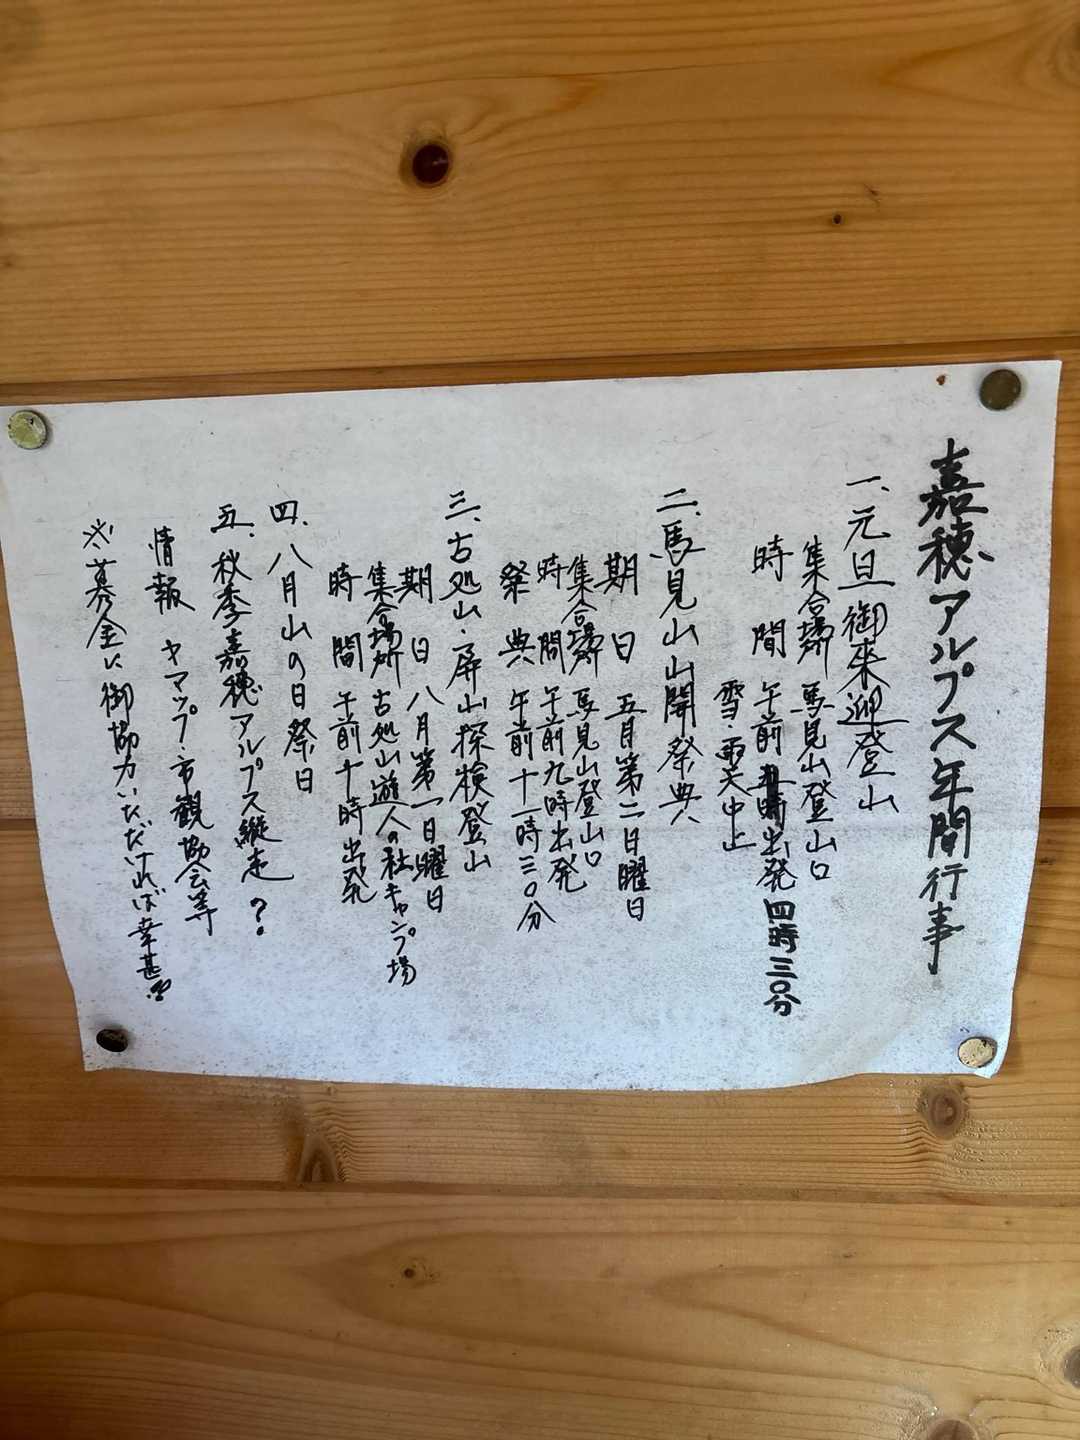 嘉穂アルプス年間行事
一、元旦御来迎登山
集合場所 馬見山登山口
時間 午前五時出発 四時三〇分
雪・雨天中止
二、馬見山山開祭典
期日 五月第二日曜日
集合場所 馬見山登山口
時間 午前九時出発
祭典 午前十一時三〇分
三、古処山・屏山探検登山
期日 八月第一日曜日
集合場所 古処山遊人の社キャンプ場
時間 午前十時出発
四、八月山の日祭日
五、秋季嘉穂アルプス縦走?
情報 ヤマップ・市観協会等
※募金に御協力いただければ幸甚